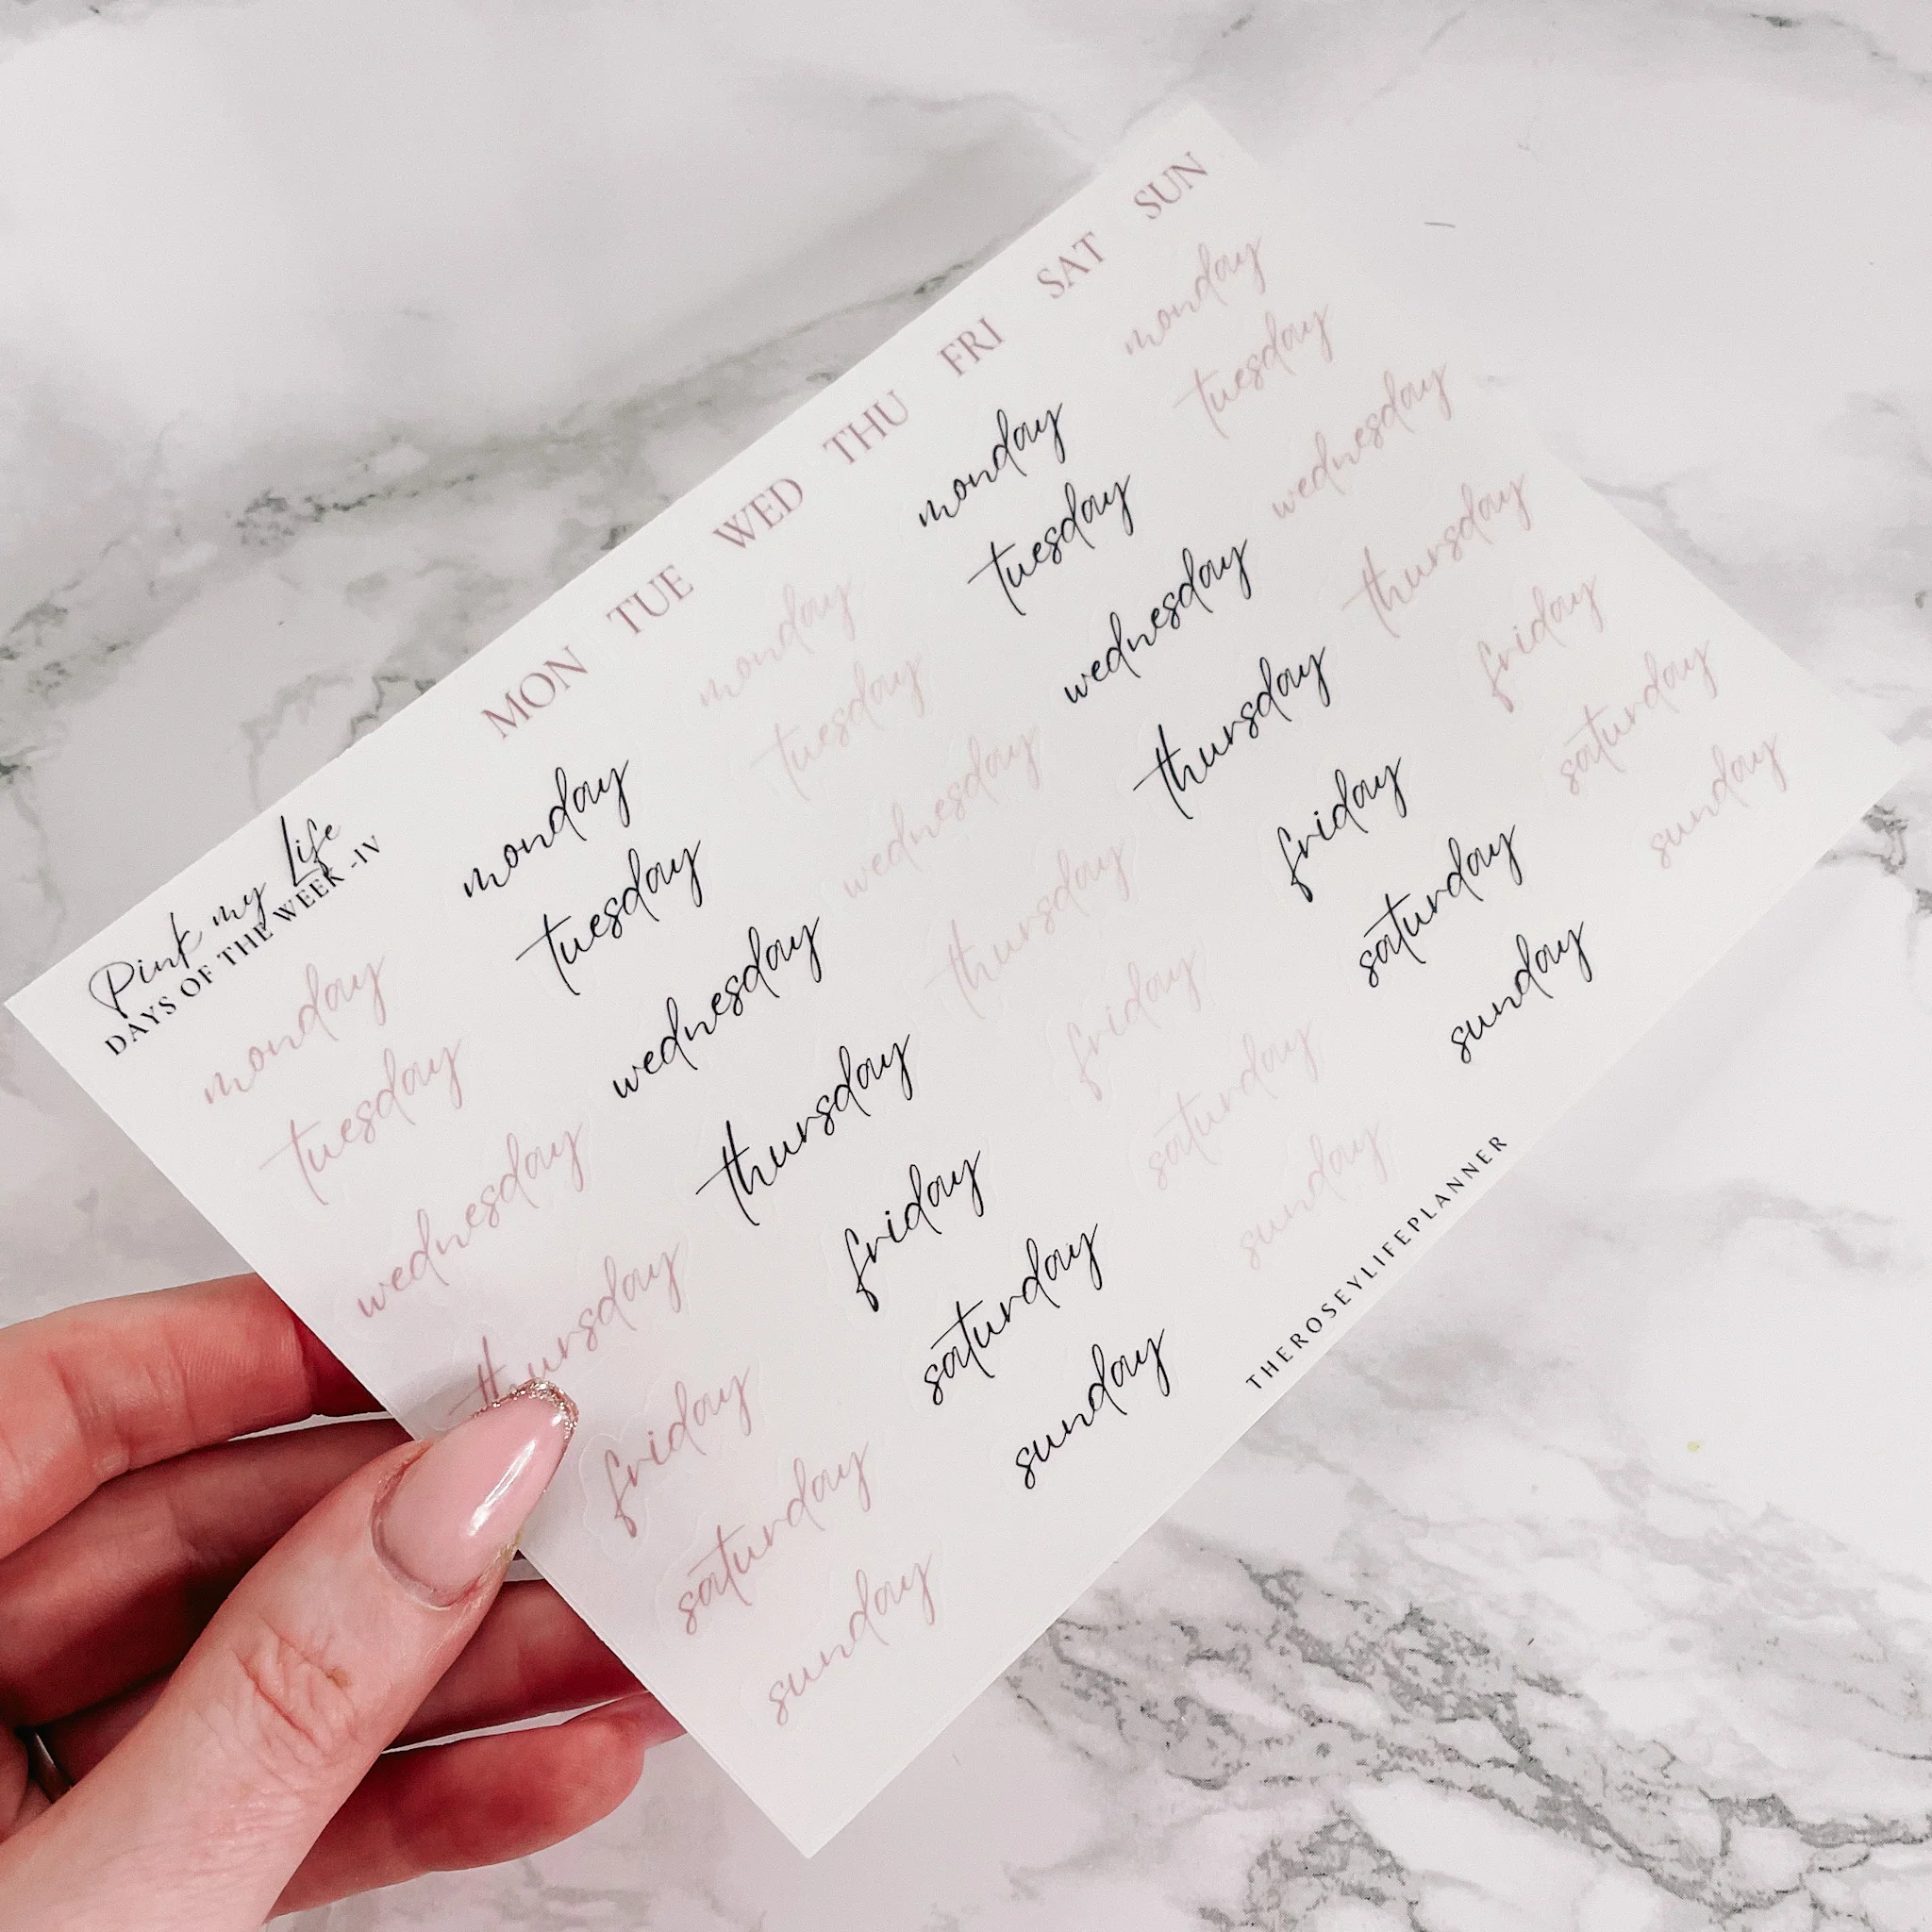 Pink my Life
DAYS OF THE WEEK -IV
MON TUE WED THU FRI SAT SUN
monday
tuesday
wednesday
thursday
friday
saturday
sunday
monday
tuesday
wednesday
thursday
friday
saturday
sunday
monday
tuesday
wednesday
thursday
friday
saturday
sunday
monday
tuesday
wednesday
thursday
friday
saturday
sunday
monday
tuesday
wednesday
thursday
friday
saturday
sunday
THEROSEYLIFEPLANNER